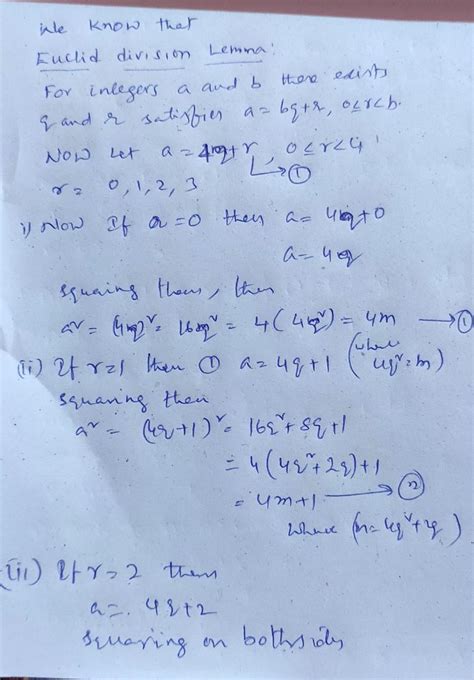 We know that
Euclid division Lemma:
For integers a and b there exists
q and r satisfies a = bq+r, 0≤r<b.
Now Let a = 4q+r, 0≤r<4
→①
r = 0, 1, 2, 3
i) Now If a=0 then a = 4q+0
a = 4q
squaing then, then
a² = (4q)² = 16q² = 4(4q²) = 4m →①
(ii) If r=1 then ① a = 4q+1 (where 4q²=m)
squaring then
a² = (4q+1)² = 16q²+8q+1
= 4(4q²+2q)+1
= 4m+1 →②
where (m=4q²+2q)
(iii) If r=2 then
a = 4q+2
squaring on bothsides